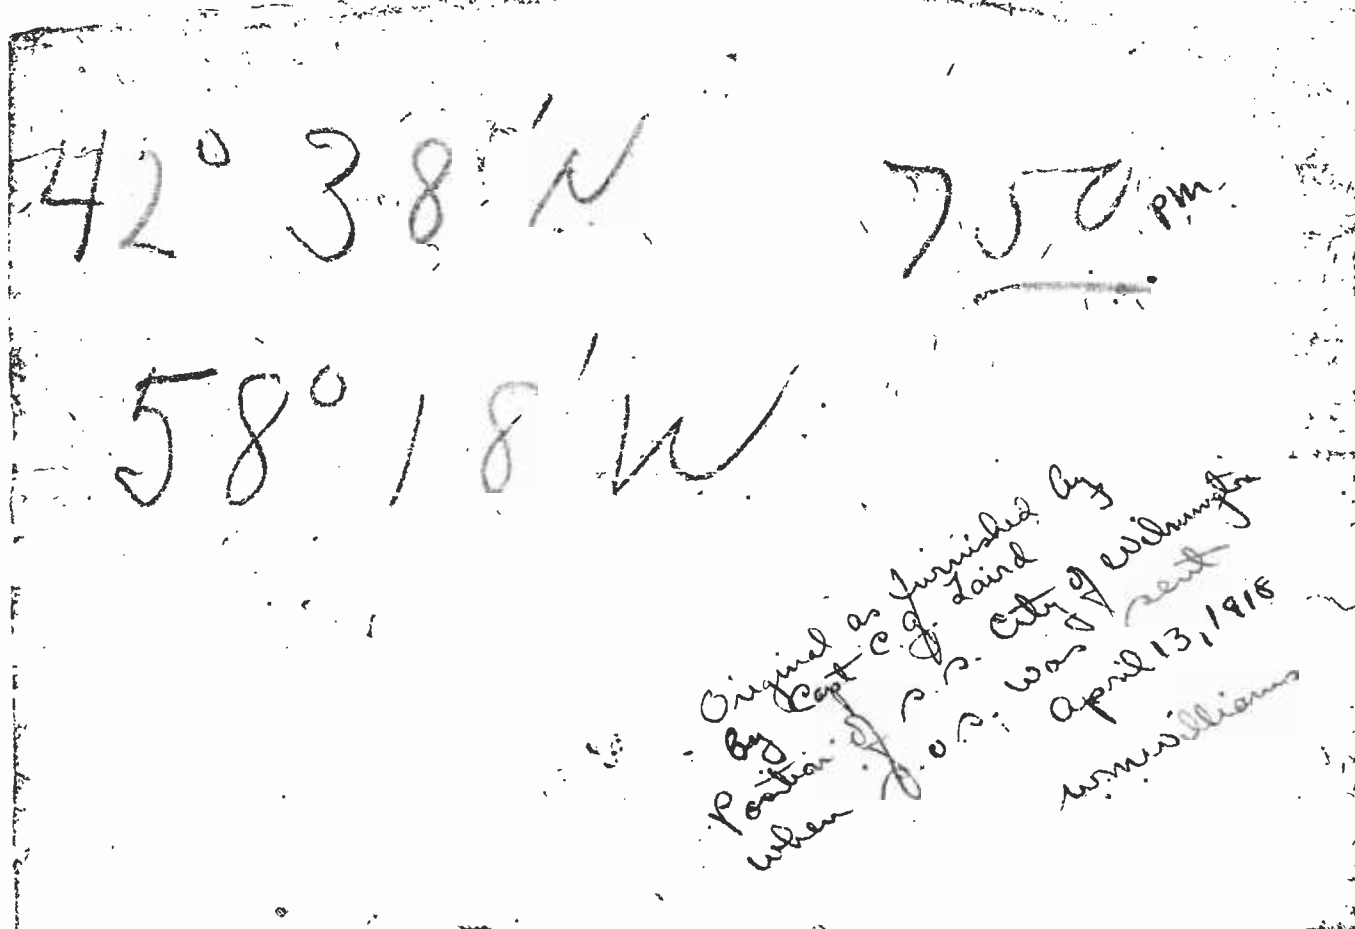 42° 38' N
750 pm
58° 18' W
Original as furnished by
By Capt C. J. Laird
Position of S. S. City of Wilmington
when S.O.S. was sent
April 13, 1918
Wm Williams